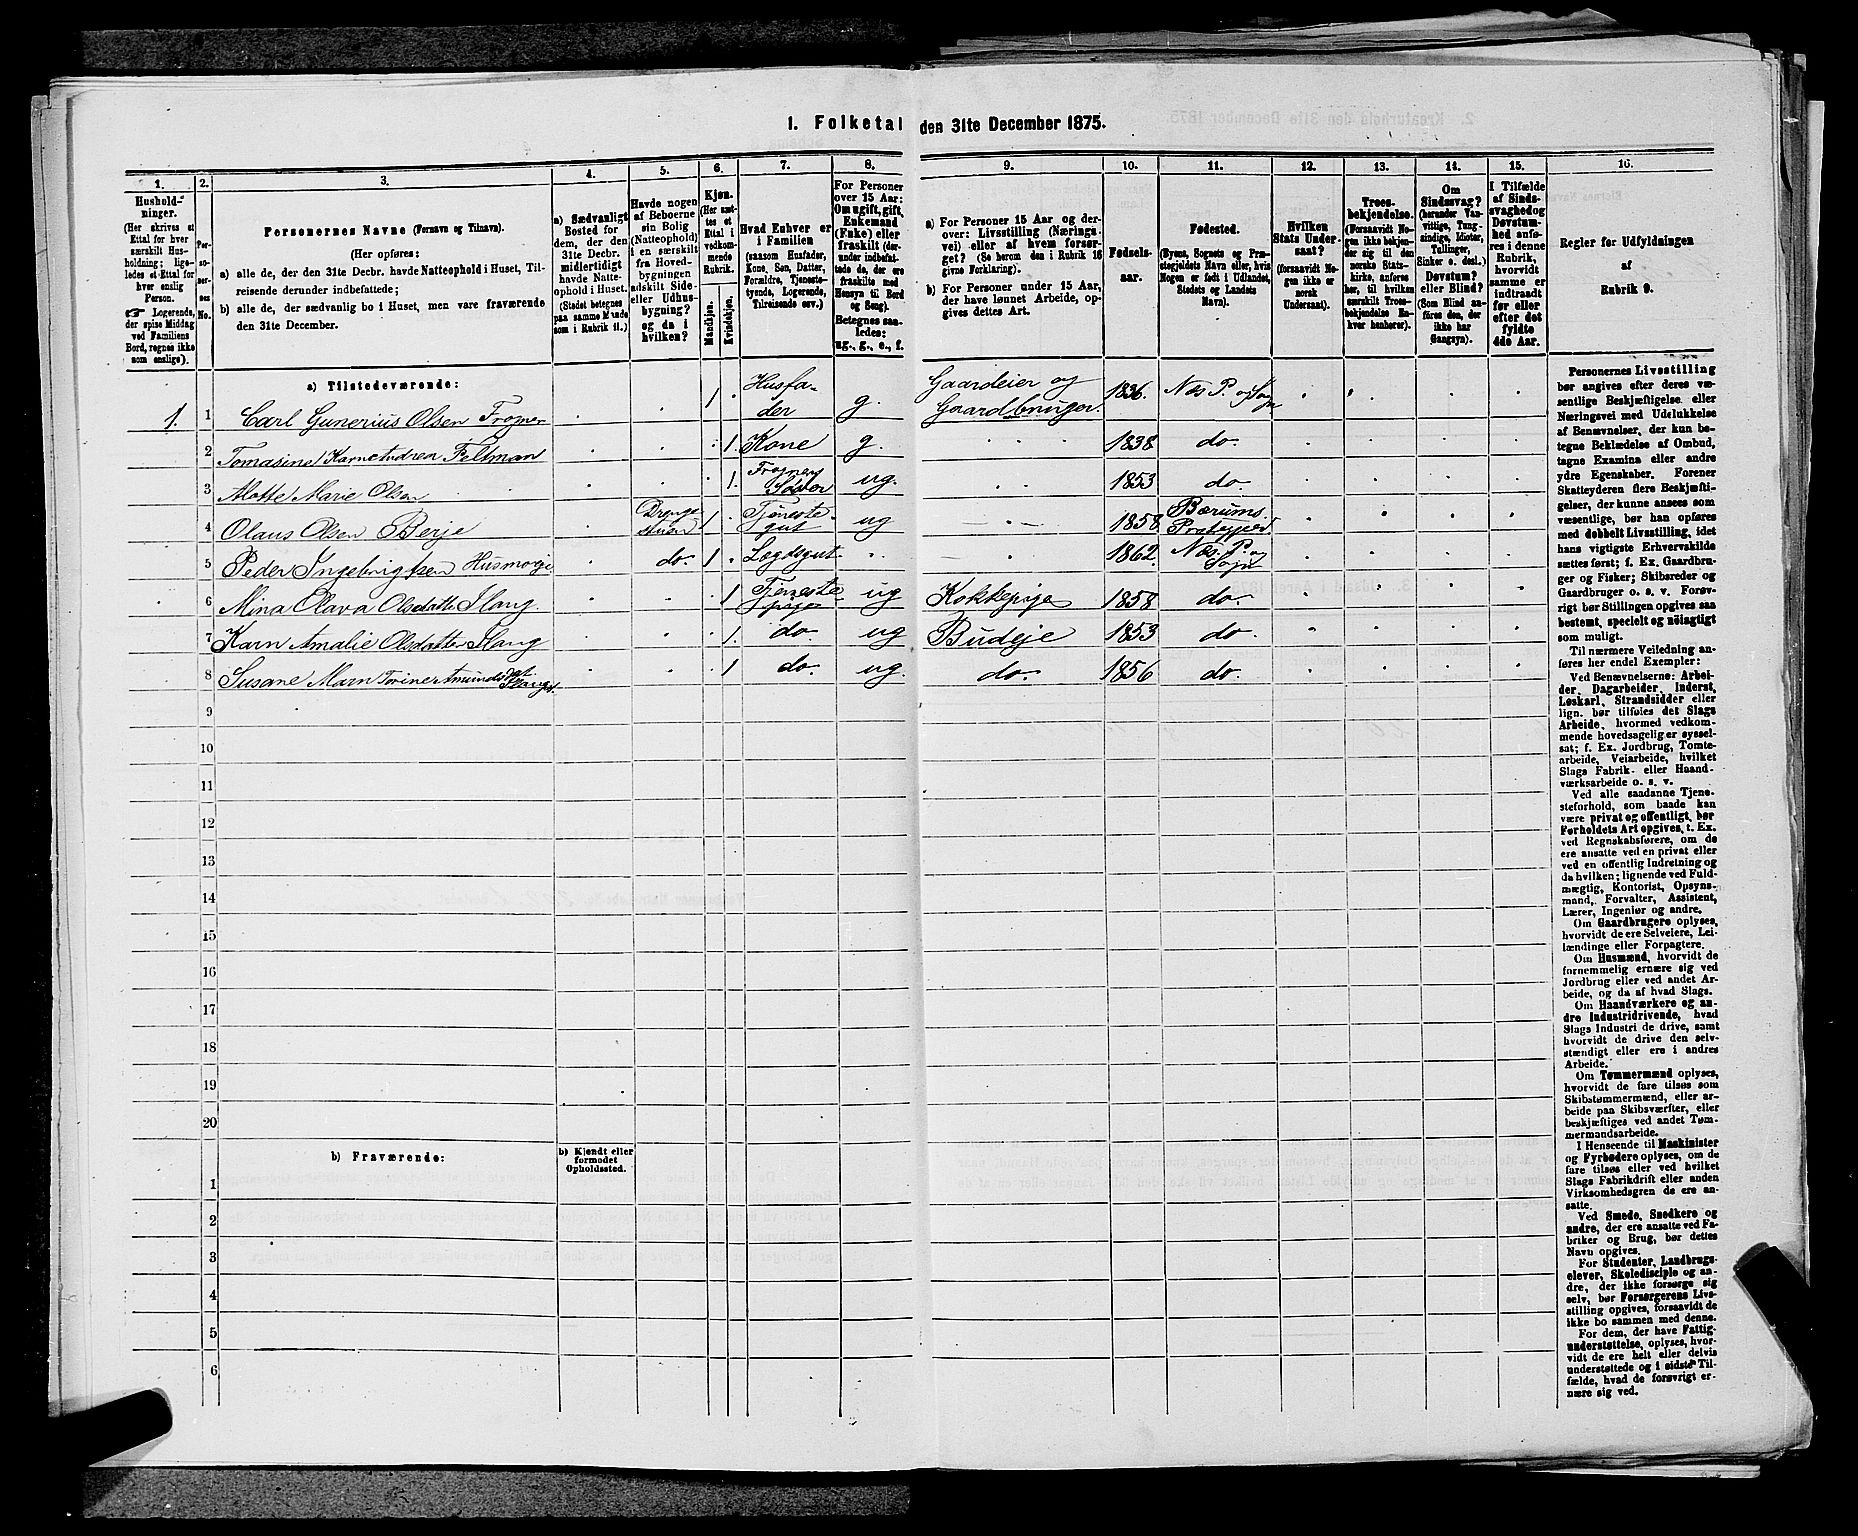 1. Folketal den 31te December 1875.
1.
Hushold-
ninger.
(Her skrives et
Ettal for hver
særskilt Hus-
holdning; lige-
ledes et Ettal for
hver enslig
Person.
☞ Logerende,
der spise Middag
ved Familiens
Bord, regnes ikke
som enslige).
2.
Per-
so-
ner-
nes
No.
3.
Personernes Navne (Fornavn og Tilnavn).
(Her opføres:
a) alle de, der den 31te Decbr. havde Natteophold i Huset, Til-
reisende derunder indbefattede;
b) alle de, der sædvanlig bo i Huset, men vare fraværende
den 31te December.
4.
a) Sædvanligt
Bosted for
dem, der den
31te Decbr.
midlertidigt
havde Natte-
ophold i Huset.
(Stedet betegnes
paa samme Maade
som i Rubrik 11.)
5.
Havde nogen
af Beboerne
sin Bolig
(Natteophold)
i en særskilt
fra Hoved-
bygningen
adskilt Side-
eller Udhus-
bygning?
og da i
hvilken?
6.
Kjøn.
(Her sæt-
tes et
Ettal i
vedkom-
mende
Rubrik.
Mandkjøn.
Kvindekjøn.
7.
Hvad Enhver er
i Familien
(saasom Husfader,
Kone, Søn, Datter,
Forældre, Tjeneste-
tyende, Logerende,
Tilreisende osv.)
8.
For Personer
over 15 Aar:
Om ugift, gift,
Enkemand
(Enke) eller
fraskilt (der-
under indbefat-
tede de, der ere
fraskilte med
Hensyn til Bord
og Seng).
Betegnes saa-
ledes:
ug., g., e., f.
9.
a) For Personer 15 Aar og der-
over: Livsstilling (Nærings-
vei) eller af hvem forsør-
get? (Se herom den i Rubrik 16
givne Forklaring).
b) For Personer under 15 Aar,
der have lønnet Arbeide, op-
gives dettes Art.
10.
Fødsels-
aar.
11.
Fødested.
(Byens, Sognets og Præ-
stegjeldets Navn eller, hvis
Nogen er født i Udlandet,
Stedets og Landets
Navn).
12.
Hvilken
Stats Under-
saat?
(forsaavidt No-
gen ikke er
norsk
Undersaat).
13.
Troes-
bekjendelse.
(Forsaavidt No-
gen ikke bekjen-
der sig til den
norske Stats-
kirke, anføres
her, til hvilken
særskilt Troes-
bekjendelse En-
hver henhører).
14.
Om
Sindssvag?
(herunder Van-
vittige, Tung-
sindige, Idioter,
Tullinger,
Sinker o. desl.)
Døvstum?
eller Blind?
(Som Blind an-
føres den, der
ikke har
Gangsyn).
15.
I Tilfælde
af Sinds-
svaghed og
Døvstum-
hed anfø-
res i denne
Rubrik,
hvorvidt
samme er
indtraadt
før eller
efter det
fyldte
4de Aar.
16.
Regler for Udfyldningen
af
Rubrik 9.
a) Tilstedeværende:
1. 1 Carl Gunerius Olsen Frogner 1 Husfa-
der g. Gaardeier og
Gaardbruger. 1836. Næs P. og Sogn
2 Tomasine Karn Andrea Feltman 1 Kone g. 1838 do.
3 Alotte Marie Olsen 1. Frogners
Søster ug. 1853 do.
4 Olaus Olsen Berje Drenge
stuen 1 Tjeneste-
gut ug 1858 Bærums
Præstegjeld
5 Peder Ingebrigtsen Husmoeje do. 1 Lægdsgut 1862 Næs P. og
Sogn
6 Mina Olava Olsdatter Ilang 1 Tjeneste
pige ug Kokkepige 1858 do.
7 Karn Amalie Olsdatter Ilang 1. do. ug Budeje 1853 do.
8 Susane Marn Torine Amundsdat. Ilang 1 do. ug. do. 1856 do.
9
10
11
12
13
14
15
16
17
18
19
20
b) Fraværende:
b) Kjendt eller
formodet
Opholdssted.
1
2
3
4
5
6
Personernes Livsstilling
bør angives efter deres væ-
sentlige Beskjæftigelse eller
Næringsvei med Udelukkelse
af Benævnelser, der kun be-
tegne Beklædelse af Ombud,
tagne Examina eller andre
ydre Egenskaber. Forener
Skatteyderen flere Beskjæfti-
gelser, der kunne ansees som
væsentlige, bør han opføres
med dobbelt Livsstilling, idet
hans vigtigste Erhvervskilde
sættes først; f. Ex. Gaardbru-
ger og Fisker; Skibsreder og
Gaardbruger o. s. v. Forøv-
rigt bør Stillingen opgives saa
bestemt, specielt og nöiagtigt
som muligt.
Til nærmere Veiledning an-
føres her endel Exempler:
Ved Benævnelserne: Arbei-
der, Dagarbeider, Inderst,
Løskarl, Strandsidder eller
lign. bør tilføies det Slags
Arbeide, hvormed vedkom-
mende hovedsagelig er syssel-
sat; f. Ex. Jordbrug, Tomte-
arbeide, Veiarbeide, hvilket
Slags Fabrik- eller Haand-
værksarbeide o. s. v.
Ved alle saadanne Tjene-
steforhold, som baade kan
være privat og offentligt, bør
Forholdets Art opgives, t. Ex.
ved Regnskabsførere, om de
ere ansatte ved en privat eller
ved en offentlig Indretning og
da hvilken; lignende ved Fuld-
mægtig, Kontorist, Opsyns-
mand, Forvalter, Assistent,
Lærer, Ingeniør og andre.
Om Gaardbrugere oplyses,
hvorvidt de ere Selveiere, Lei-
lændinge eller Forpagtere.
Om Husmænd, hvorvidt de
fornemmelig ernære sig ved
Jordbrug eller ved andet Ar-
beide, og da af hvad Slags.
Om Haandværkere og an-
dre Industridrivende, hvad
Slags Industri de drive, samt
hvorvidt de drive den selv-
stændigt eller ere i andres
Arbeide.
Om Tømmermænd oplyses,
hvorvidt de fare tilsøs som
Skibstømmermænd, eller ar-
beide paa Skibsværfter, eller
beskjæftiges ved andet Tøm-
mermandsarbeide.
I Henseende til Maskinister
og Fyrbødere oplyses, om de
fare tilsøs eller ved hvilket
Slags Fabrikdrift eller anden
Virksomhedsgren de ere an-
satte.
Ved Smede, Snedkere og
andre, der ere ansatte ved Fa-
briker og Brug, bør dettes
Navn opgives.
For Studenter, Landbrugs-
elever, Skoledisciple og an-
dre, der ikke forsørge sig
selv, bør Forsørgerens Livs-
stilling opgives, forsaavidt de
ikke bo sammen med denne.
For dem, der have Fattig-
understøttelse, oplyses, hvor-
vidt de ere helt eller delvis
understøttede og i sidste Til-
fælde, hvad de forøvrigt er-
nære sig ved.